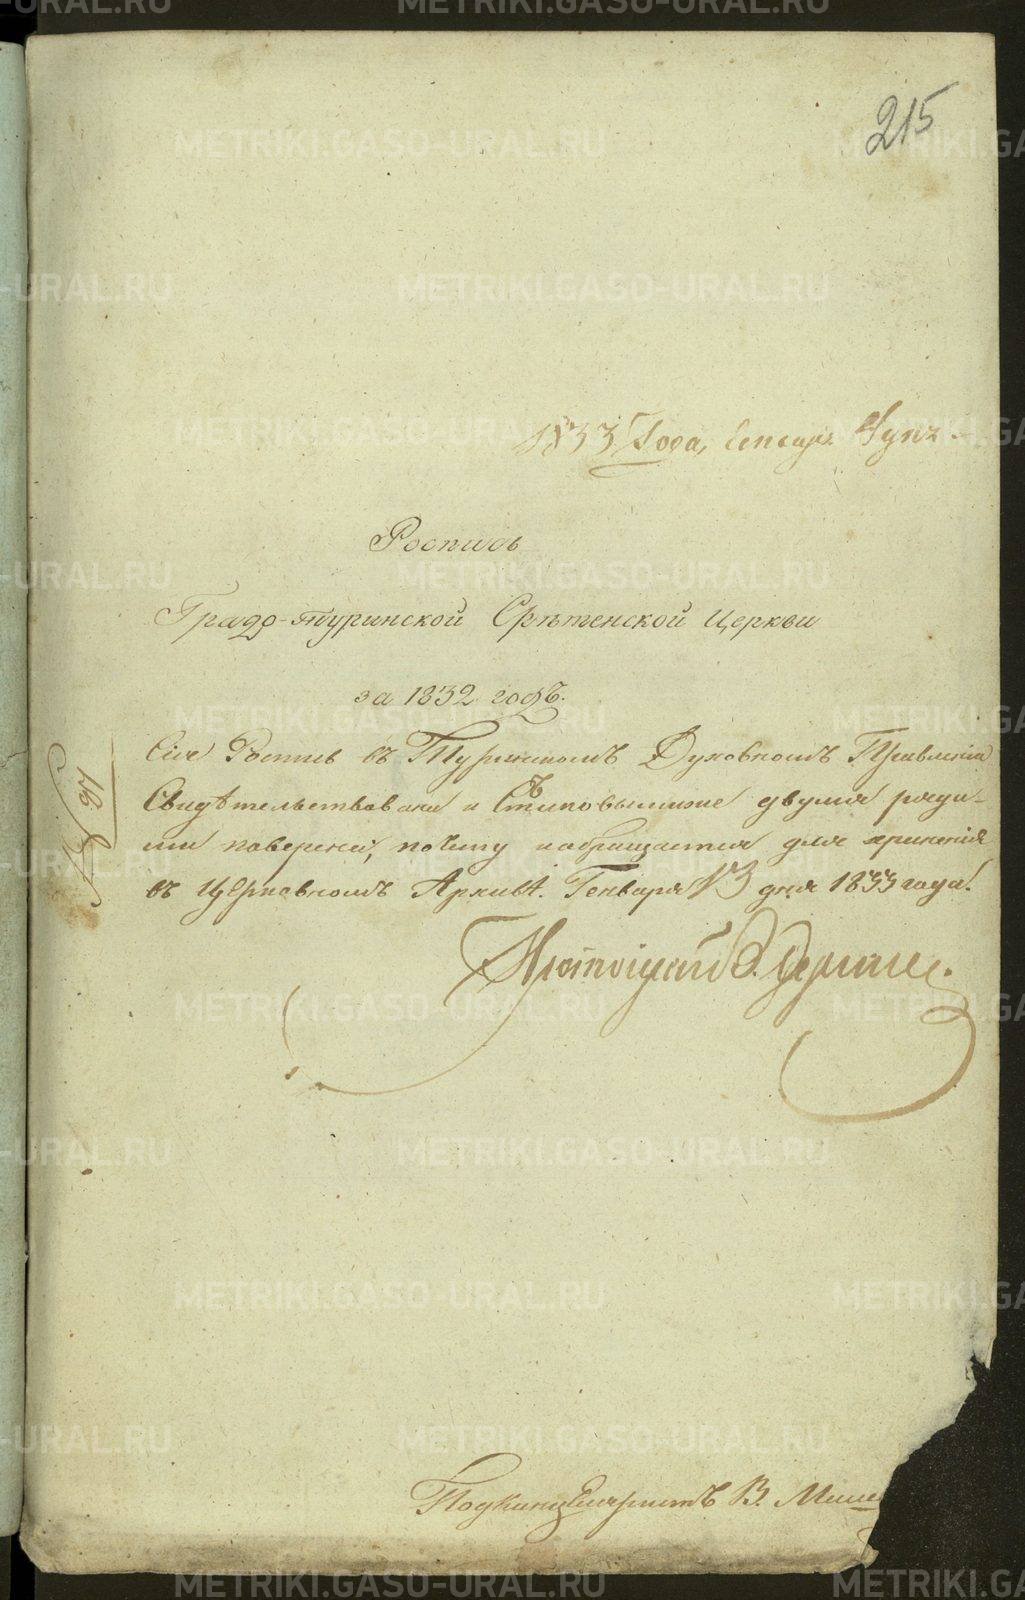 215
1833 Года,
Роспись
Градо-Туринской Срѣтенской Церкви
за 1832 годъ.
Сія Роспись въ Туринскомъ Духовномъ Правленіи
Свидѣтельствована и двумя
поверена, почему и обращается для храненія
въ Церковномъ Архивѣ. Генваря 13 дня 1833 года.
№ 97
Подканцеляристъ В.
METRIKI.GASO-URAL.RU